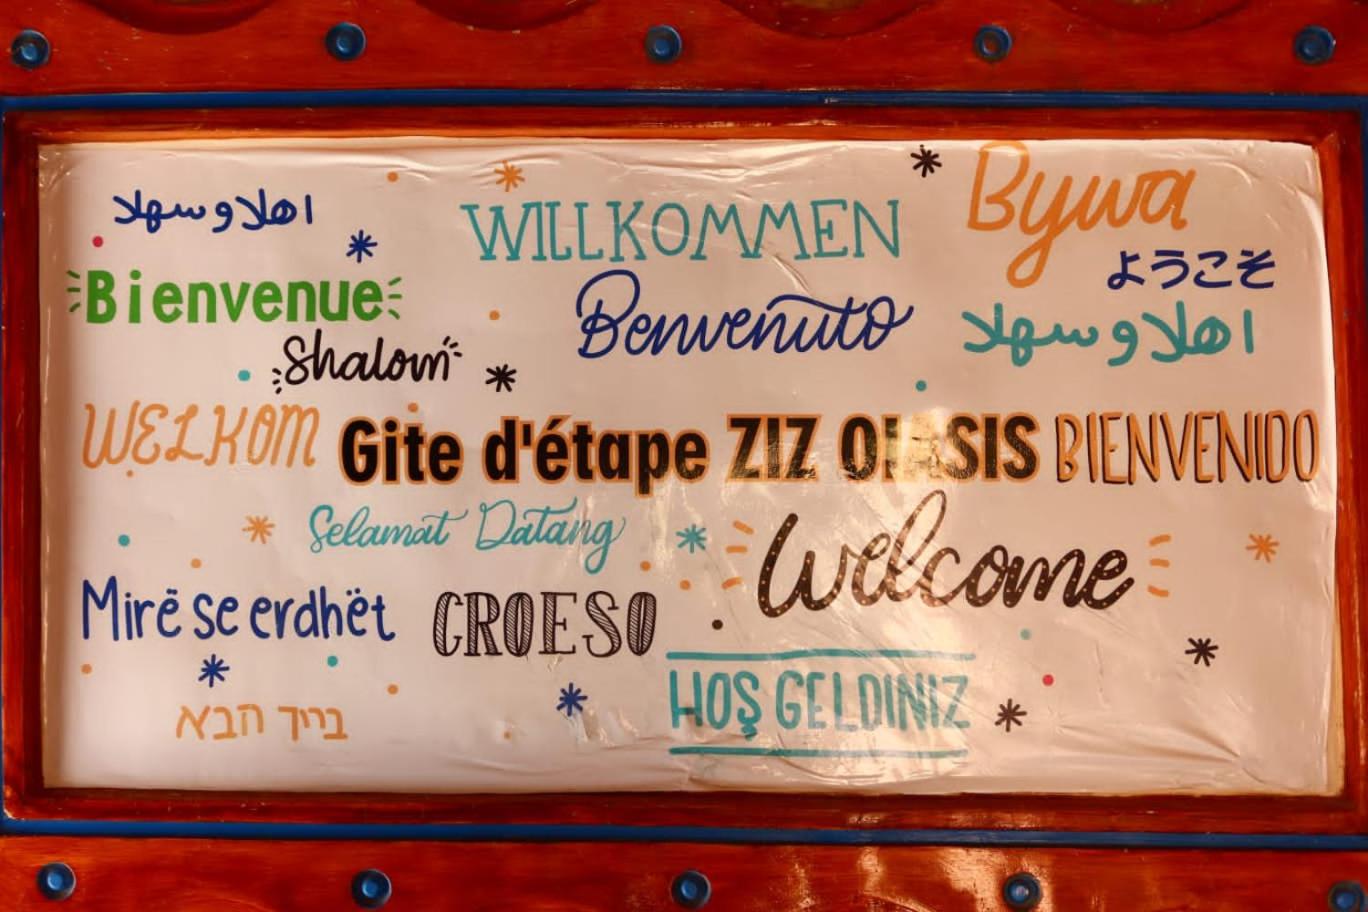 اهلا وسهلا
WILLKOMMEN
Bywa
ようこそ
Bienvenue
Benvenuto
اهلا وسهلا
Shalom
WELKOM
Gite d'étape ZIZ OIASIS
BIENVENIDO
Selamat Datang
Welcome
Mirë se erdhët
CROESO
HOŞ GELDINIZ
בריך הבא